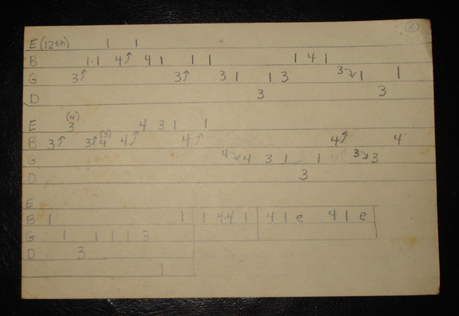 E (12th) 1 1
B 1 1 4↗ 4 1 1 1 1 4 1
G 3↗ 3↗ 3 1 1 3 3↘ 1 1
D 3 3
E 3 (4) 4 3 1 1
B 3↗ 3↗ 4 (3) 4↗ 4↗ 4↗ 4
G 4↘ 4 3 1 1 3↘ 3
D 3
E
B 1 1 1 4 4 1 4 1 e 4 1 e
G 1 1 1 1 3
D 3
1